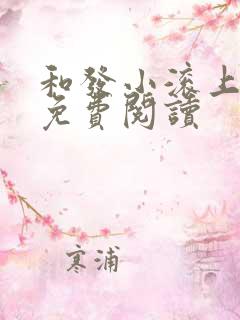 和發小滚上
免費閱讀
寒浦